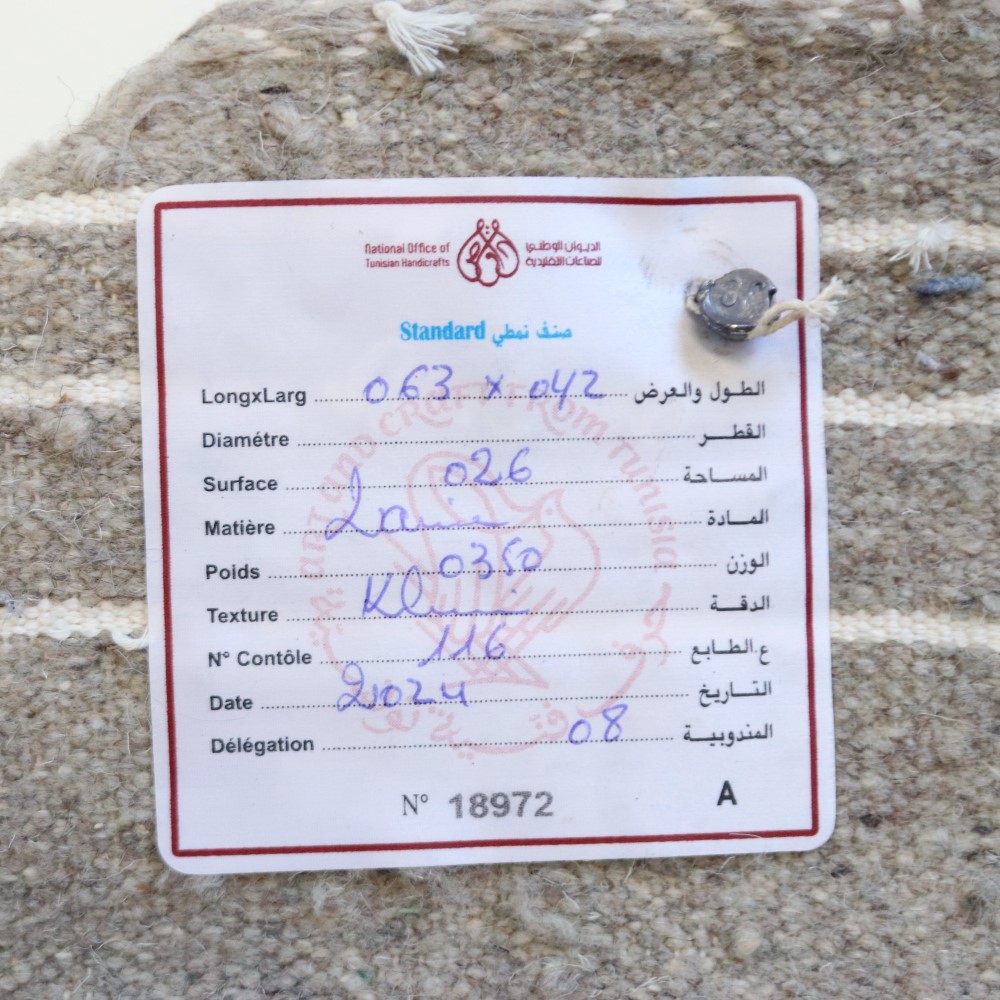 National Office of
Tunisian Handicrafts
الديوان الوطني
للصناعات التقليدية
Standard صنف نمطي
LongxLarg 063 x 042 الطول والعرض
Diamétre القطر
Surface 026 المساحة
Matière Laine المادة
Poids 0350 الوزن
Texture Klim الدقة
N° Contôle 116 ع.الطابع
Date 2024 التاريخ
Délégation 08 المندوبية
N° 18972 A